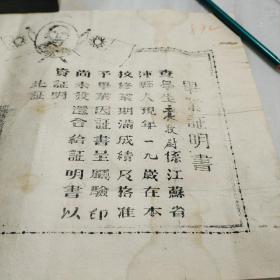 畢業証明書
查學生
係江蘇省
沛縣人現年一九歲在本
校修業期滿成績及格准
予畢業因証書呈屬驗印
尚未沒還合給証明書以
資証明
此証